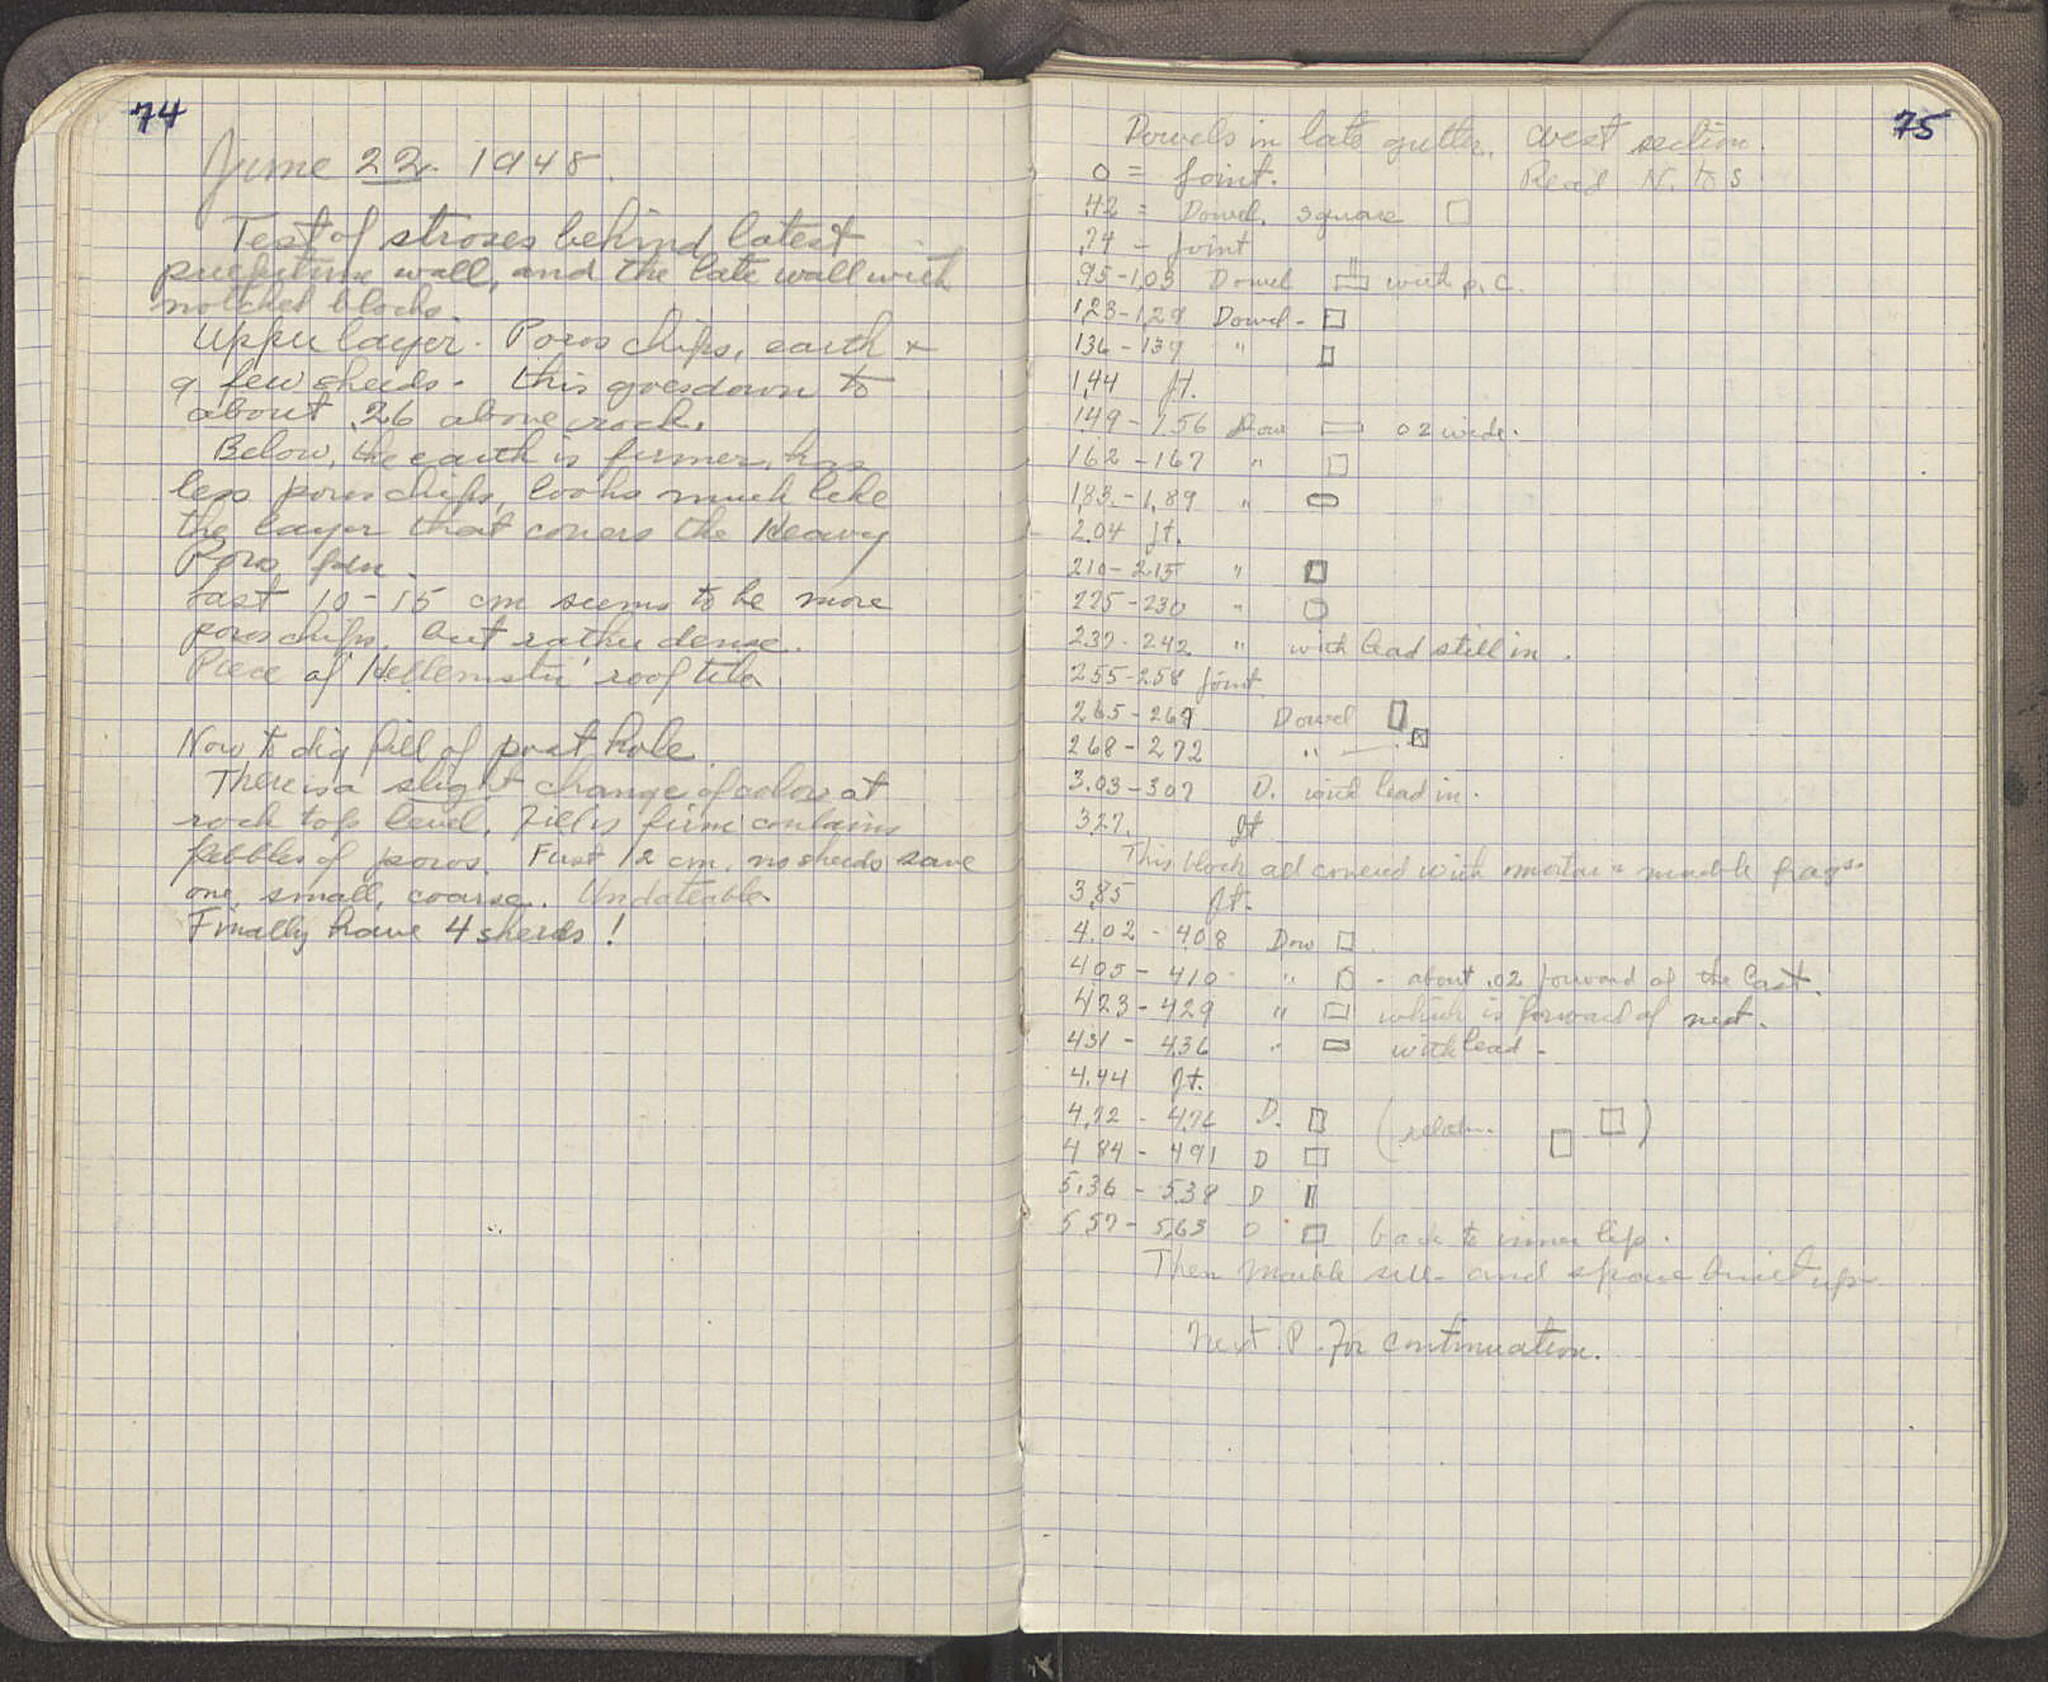 74
June 22. 1948.
Test of stroses behind latest
precinct wall, and the late wall with
notched blocks.
Upper layer. Poros chips, earth +
a few sherds. This goes down to
about .26 above rock.
Below, the earth is firmer, has
less poros chips, looks much like
the layer that covers the Heavy
Poros fdn.
Last 10-15 cm seems to be more
poros chips, but rather dense.
Piece of 'Hellenistic' roof tile
Now to dig fill of post hole.
There is a slight change of color at
rock top level. Fill is firm contains
pebbles of poros. First 12 cm. no sherds save
one, small, coarse. Undateable.
Finally have 4 sherds!
75
Dowels in late gutter, West section.
0 = Joint. Read N. to S
.42 = Dowel, square □
.74 - Joint
.95-1.03 Dowel with p.c.
1.23-1.29 Dowel - □
136-139 " □
1.44 Jt.
149-156 Dow 02 wide.
162-167 " □
1.83-1.89 "
2.04 Jt.
210-215 " □
225-230 "
237-242 " with lead still in.
255-258 Joint
265-267 Dowel
268-272 "
3.03-307 D. with lead in.
327. Jt
This block all covered with mortar + marble frags.
3.85 Jt.
4.02-408 Dow □
405-410 " □ - about .02 forward of the last.
423-429 " □ which is forward of next.
431-436 " with lead -
4.44 Jt.
4.72-476 D. □ (relatn. □ □)
484-491 D □
5.36-538 D
557-5.63 D □ back to inner lip.
Then marble sill and space built up.
Next P. for continuation.